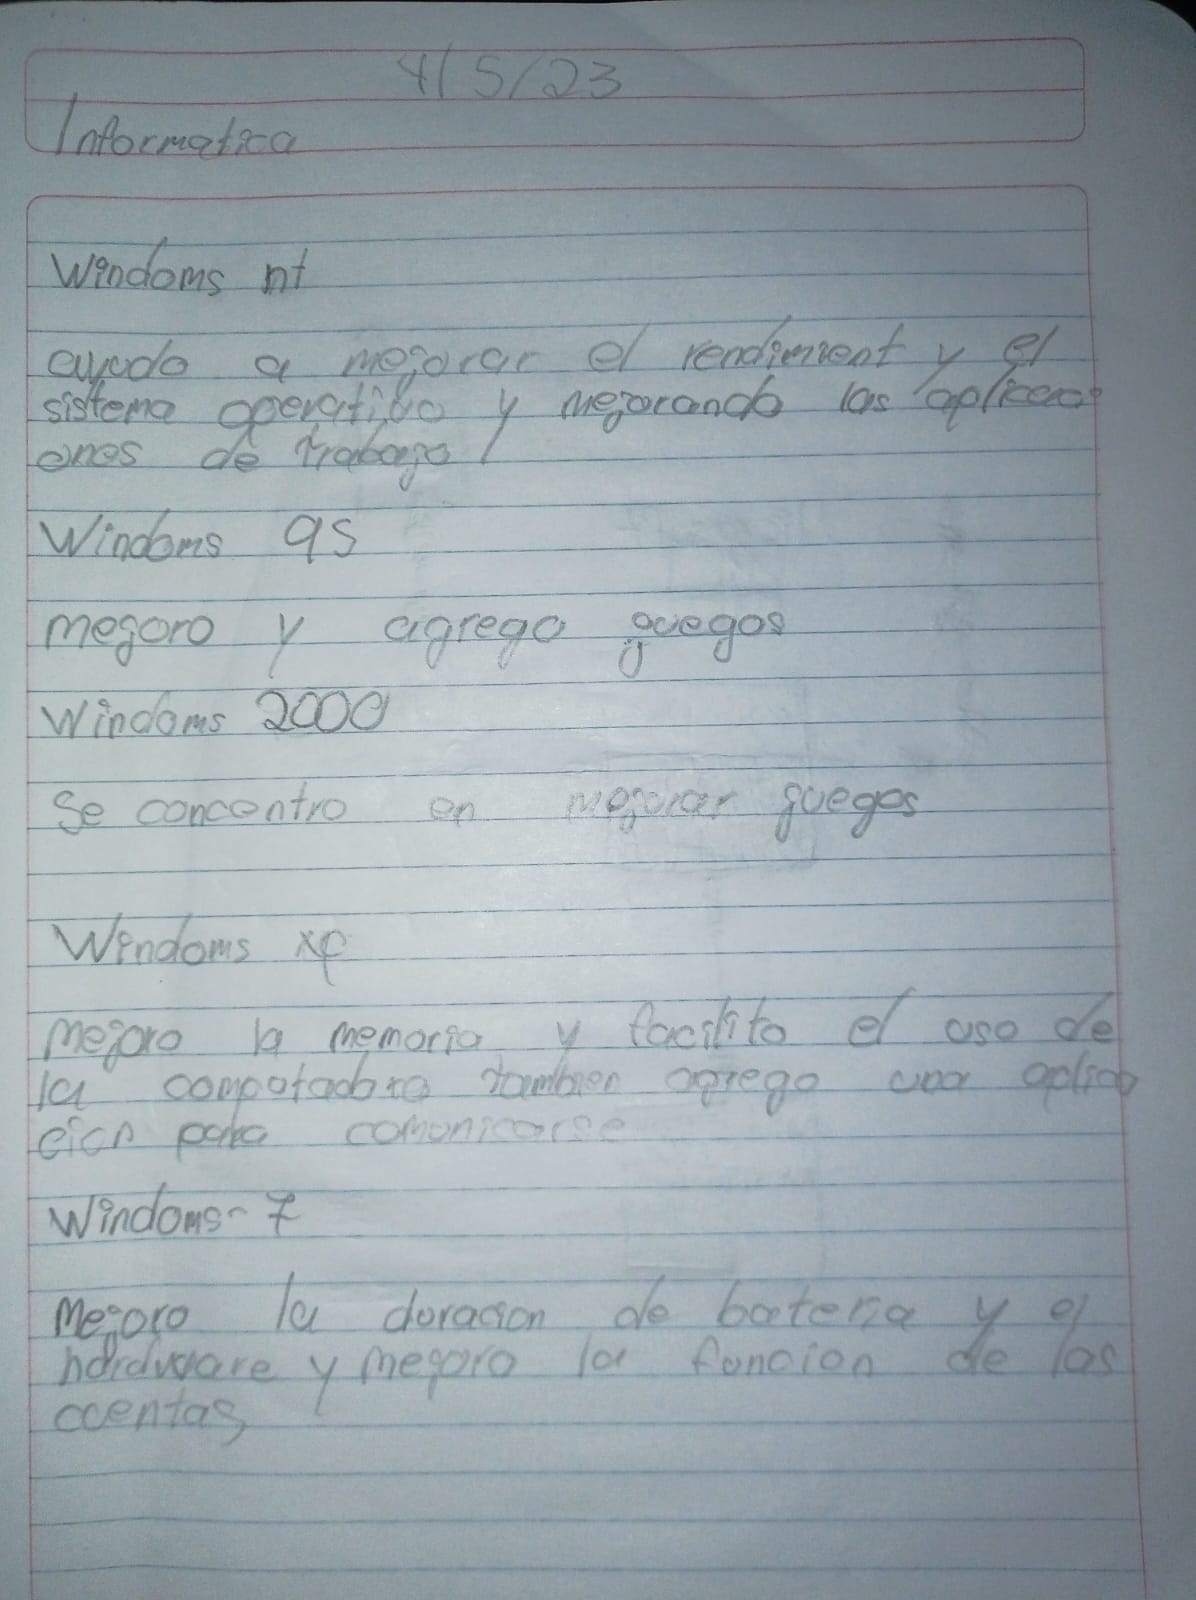 4/5/23
Informatica
Windoms nt
ayudo a mejorar el rendimient y el
sistema operativo y mejorando las aplicaci
ones de trabajo
Windoms 95
mejoro y agrego juegos
Windoms 2000
Se concentro en mejorar juegos
Windoms xp
Mejoro la memoria y facilito el uso de
la computadora tambien agrego una aplica
cion para comunicarse
Windoms-7
Mejoro la duracion de bateria y el
hardware y mejoro la funcion de las
cuentas